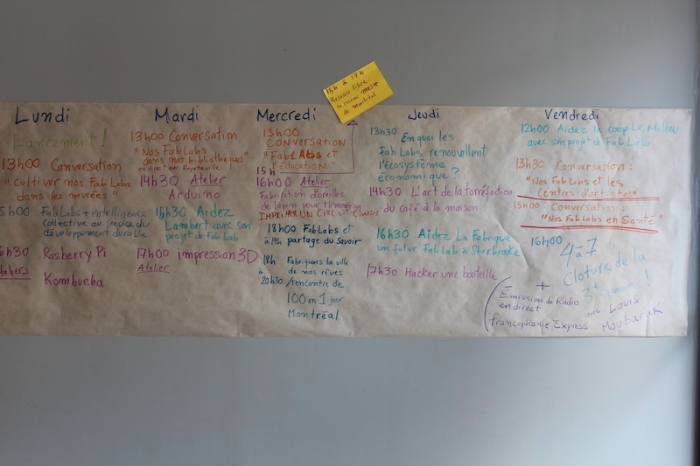 Lundi
Lancement !
13h00 Conversation
"cultiver nos Fab Labs
dans les musées"
15h00 FabLabs + intelligence
collective au service du
développement durable
16h30 Rasberry Pi
Ateliers
Kombucha
Mardi
13h00 Conversation
"Nos FabLabs
dans nos bibliothèques"
14h30 Atelier
Arduino
15h30 Aidez
Lambert avec son
projet de Fab Lab
17h00 impression 3D
Atelier
15h à 17h
Réseau libre
le réseau mesh
de Montréal
Mercredi
13h00
CONVERSATION
"Fab Labs et
Éducations"
15h
16h00 Atelier
Fabrication d'oreilles
de lapin pour
IMPRIMER UN CIRCUIT
18h00 FabLabs et
à 19h partage du Savoir
18h Fabriquons la ville
à de nos rêves
20h30 /rencontre de
100 m 1 jour
Montréal
Jeudi
13h30 En quoi les
Fab Labs renouvellent
l'écosystème
économique ?
14h30 L'art de la torréfaction
du café à la maison
16h30 Aidez La Fabrique
un futur Fab Lab à Sherbrooke
17h30 Hacker une bouteille
Vendredi
12h00 Aidez le coop Le Milieu
avec son projet de Fab Lab
13h30 Conversation :
"Nos Fab Labs et les
Centres d'art
15h00 Conversation :
"Nos FabLabs en Santé"
16h00
4 à 7
Cloture de la
semaine !
+
Émission de Radio
en direct
Francophonie Express
avec Louis
Moubarak